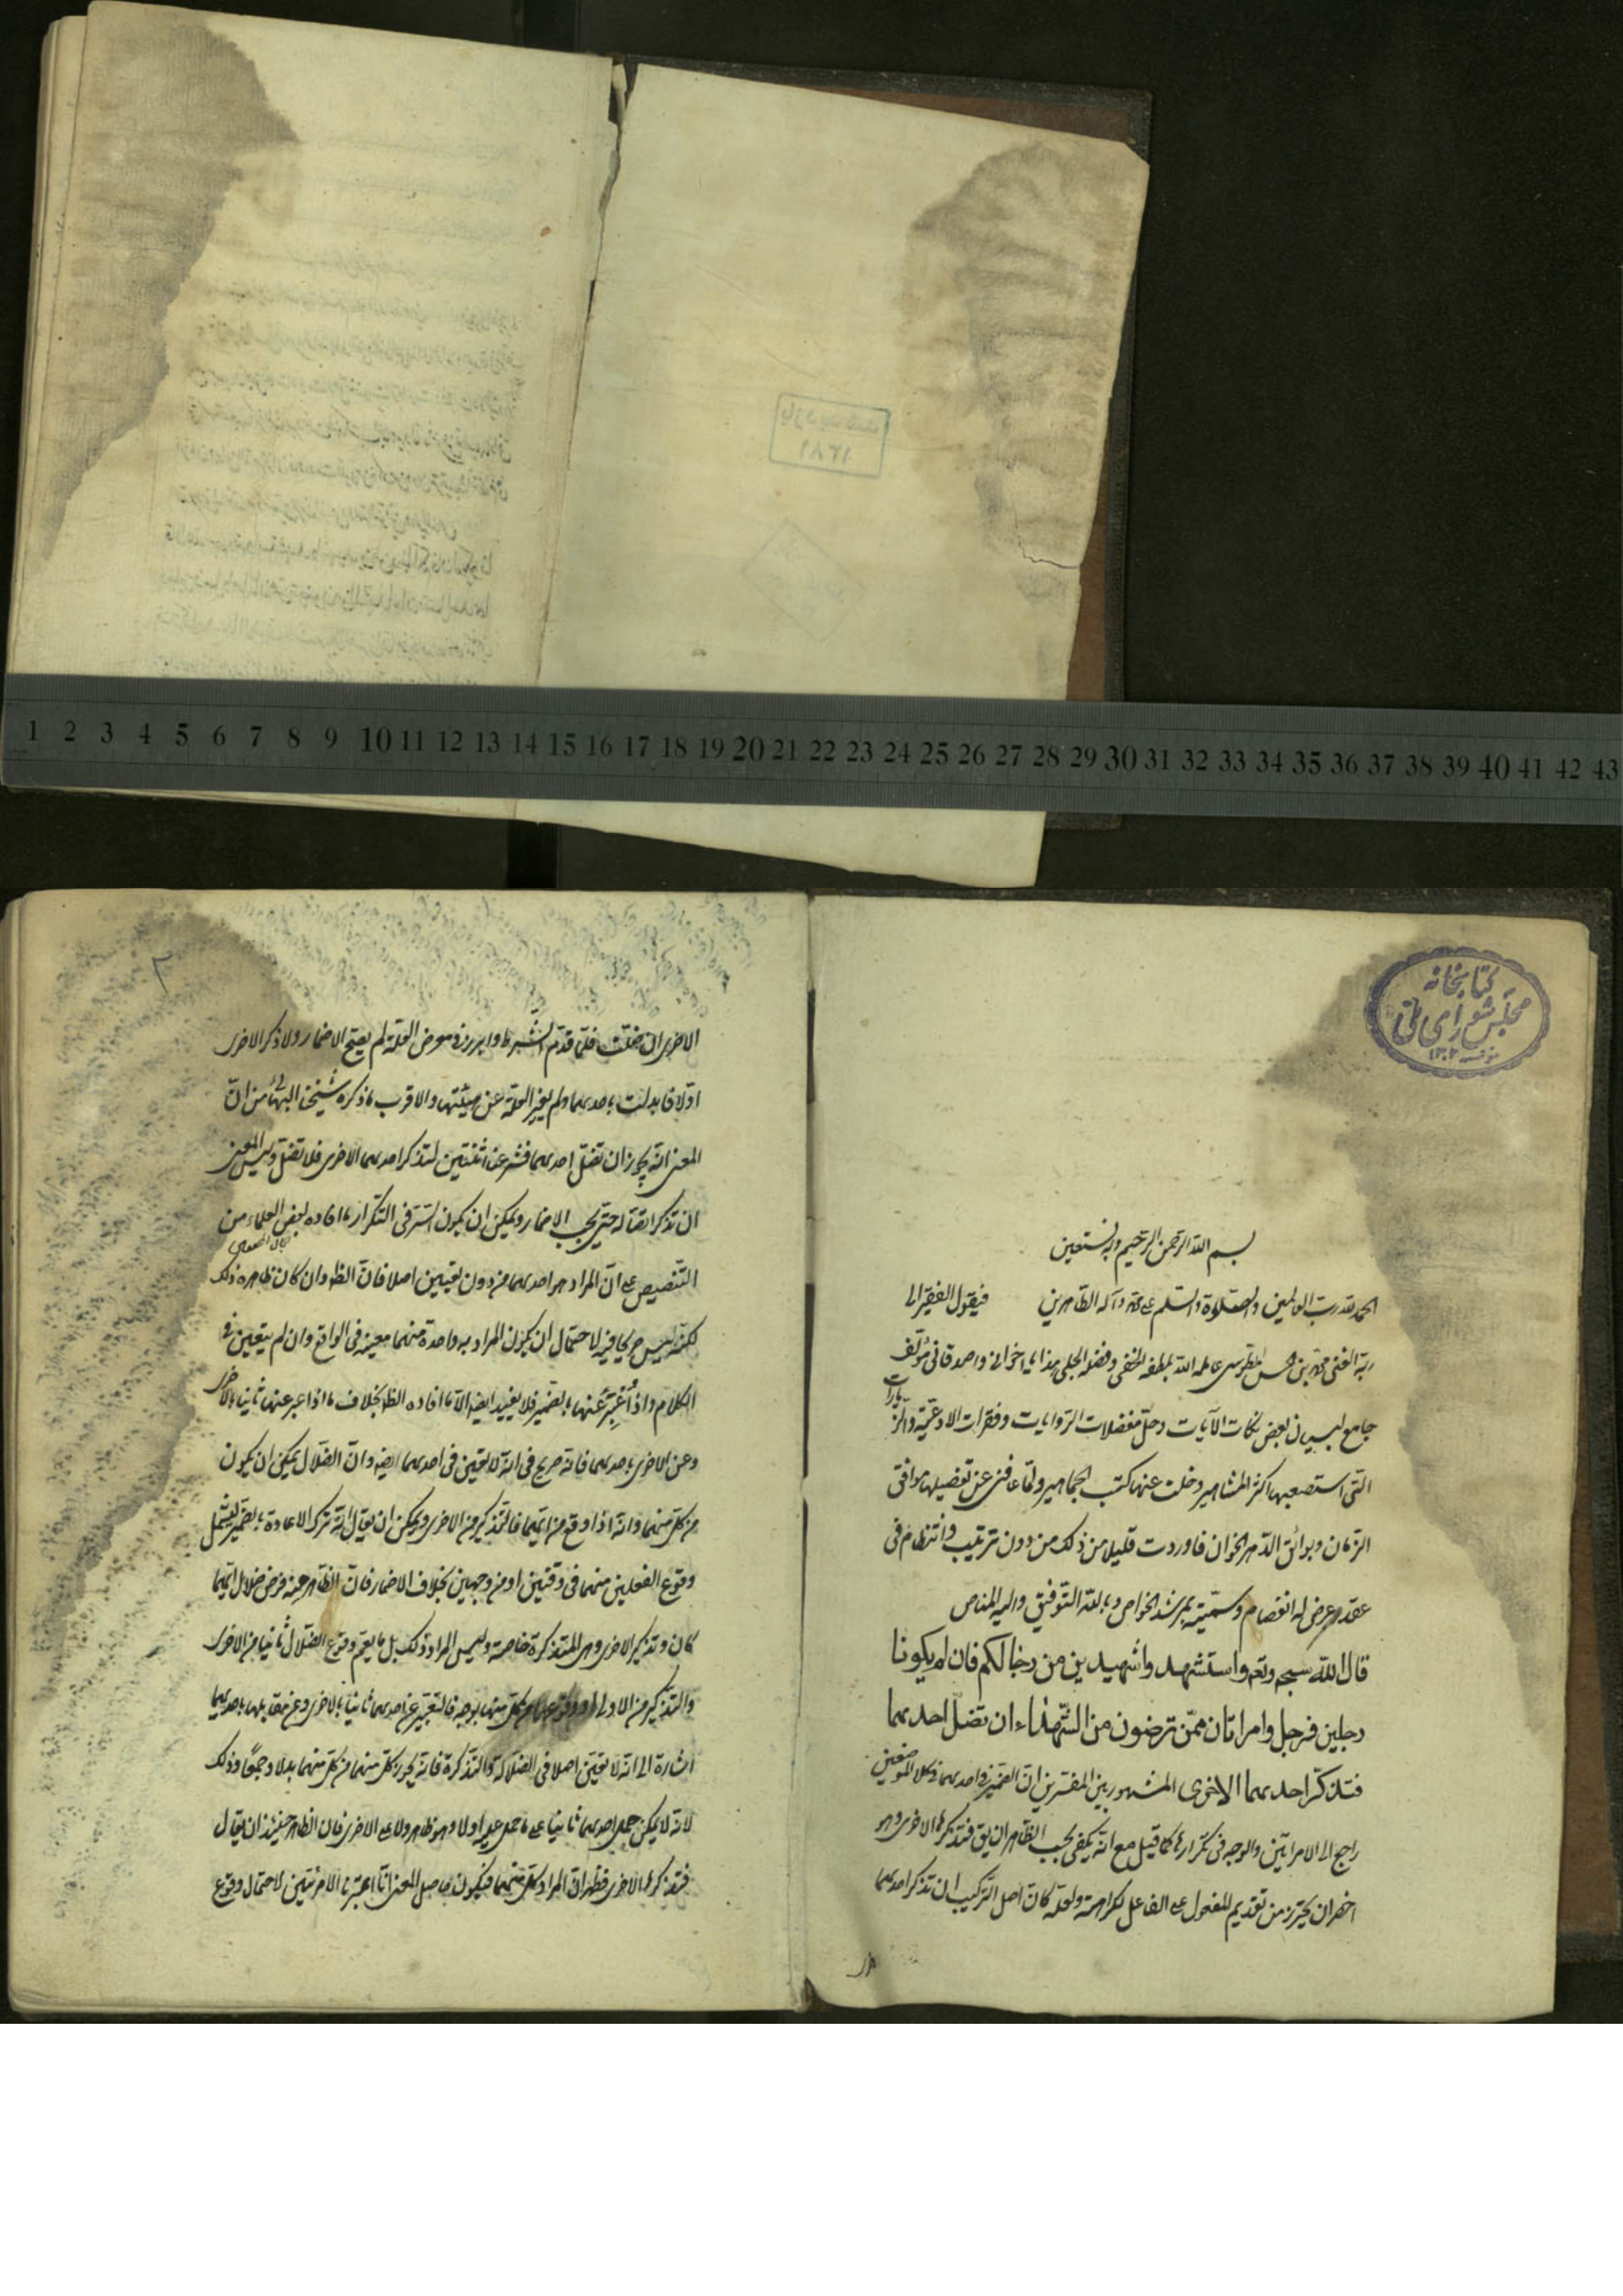 1 2 3 4 5 6 7 8 9 10 11 12 13 14 15 16 17 18 19 20 21 22 23 24 25 26 27 28 29 30 31 32 33 34 35 36 37 38 39 40 41 42 43
کتابخانه
مجلس شورای ملی
بسم الله الرحمن الرحیم وبه نستعین
الحمد لله رب العالمین والصلوة والسلم علی محمد وآله الطاهرین فیقول الفقیر الی
ربه الغنی محمد بن الطوسی عامله الله بلطفه الخفی وفضله الجلی هذا یا اخوانی واصدقائی مؤلف
جامع لبیان بعض نکات الآیات وحل معضلات الروایات وفقرات الادعیة والزیارات
التی استصعبها اکثر المشاهیر وخلت عنها کتب الجماهیر ولما عاقنی عن تفصیلها موافق
الزمان وبوائق الدهر الخوان فاوردت قلیلا من ذلک من دون ترتیب وانتظام فی
عقد عرض له انفصام وسمیته بمرشد الخواص وبالله التوفیق والیه المناص
قال الله سبحه وتعه واستشهدوا شهیدین من رجالکم فان لم یکونا
رجلین فرجل وامراتان ممن ترضون من الشهداء ان تضل احدیهما
فتذکر احدیهما الاخری المشهور بین المفسرین ان الضمیر فی احدیهما فی کلا الموضعین
راجع الی الامراتین والوجه فی تکرارها کما قیل مع انه یکفی بحسب الظاهر ان یق فتذکرها الاخری وهو
اخصر ان یحترز من تقدیم المفعول علی الفاعل لکراهته ولعله کان اصل الترکیب ان تذکر احدیهما
الاخری ان ضلت فلما قدم الشرط وابرز فی معرض العلة لم یصح الاضمار ولا ذکر الاخری
اولا فابدلت باحدیهما ولم یغیر العلة عن هیئتها والاقرب ما ذکره شیخنا البهائی من ان
المعنی انه یجوز ان تضل احدیهما فشرعنا اثنتین لتذکر احدیهما الاخری فلا تضل ولیس المعنی
ان تذکر الضالة حتی یجب الاضمار ویمکن ان یکون السر فی التکرار ما افاده بعض العلماء من
التنصیص علی ان المراد هو احدیهما من دون تعیین اصلا فان الظ وان کان ظاهره ذلک
لکنه لیس صریحا فیه لاحتمال ان یکون المراد به واحدة منهما معینة فی الواقع وان لم یتعین فی
الکلام واذا عبر عنها بالضمیر فلا یفید ایضا الا ما افاده الظ بخلاف ما اذا عبر عنها ثانیا بالاخری
وعن الاخری باحدیهما فانه صریح فی انه لا تعین فی احدیهما ایضا وان الضلال یمکن ان یکون
من کل منهما وانه اذا وقع من ایهما فالتذکیر من الاخری ویمکن ان یقال انه ترک الاعادة بالضمیر لیشمل
وقوع الفعلین منهما فی وقتین او من وجهین بخلاف الاضمار فان الظاهر منه فرض ضلال ایهما
کان وتذکیر الاخری وهی المتذکرة خاصة ولیس المراد ذلک بل ما یعم وقوع الضلال ثانیا من الاخری
والتذکیر من الاولی فالتعبیر عن احدیهما ثانیا بالاخری وعن مقابلها باحدیهما
اشارة الی انه لا تعین اصلا فی الضلالة والتذکرة فانه یجوز کل منهما من کل منهما بدلا وجمعا وذلک
لانه لا یمکن حمل احدیهما ثانیا علی ما حمل علیه اولا وهو ظاهر ولا علی الاخری فان الظاهر حینئذ ان یقال
فتذکرها الاخری فظهر ان المراد کل منهما فیکون حاصل المعنی انا اعتبرنا الامرئتین لاحتمال وقوع